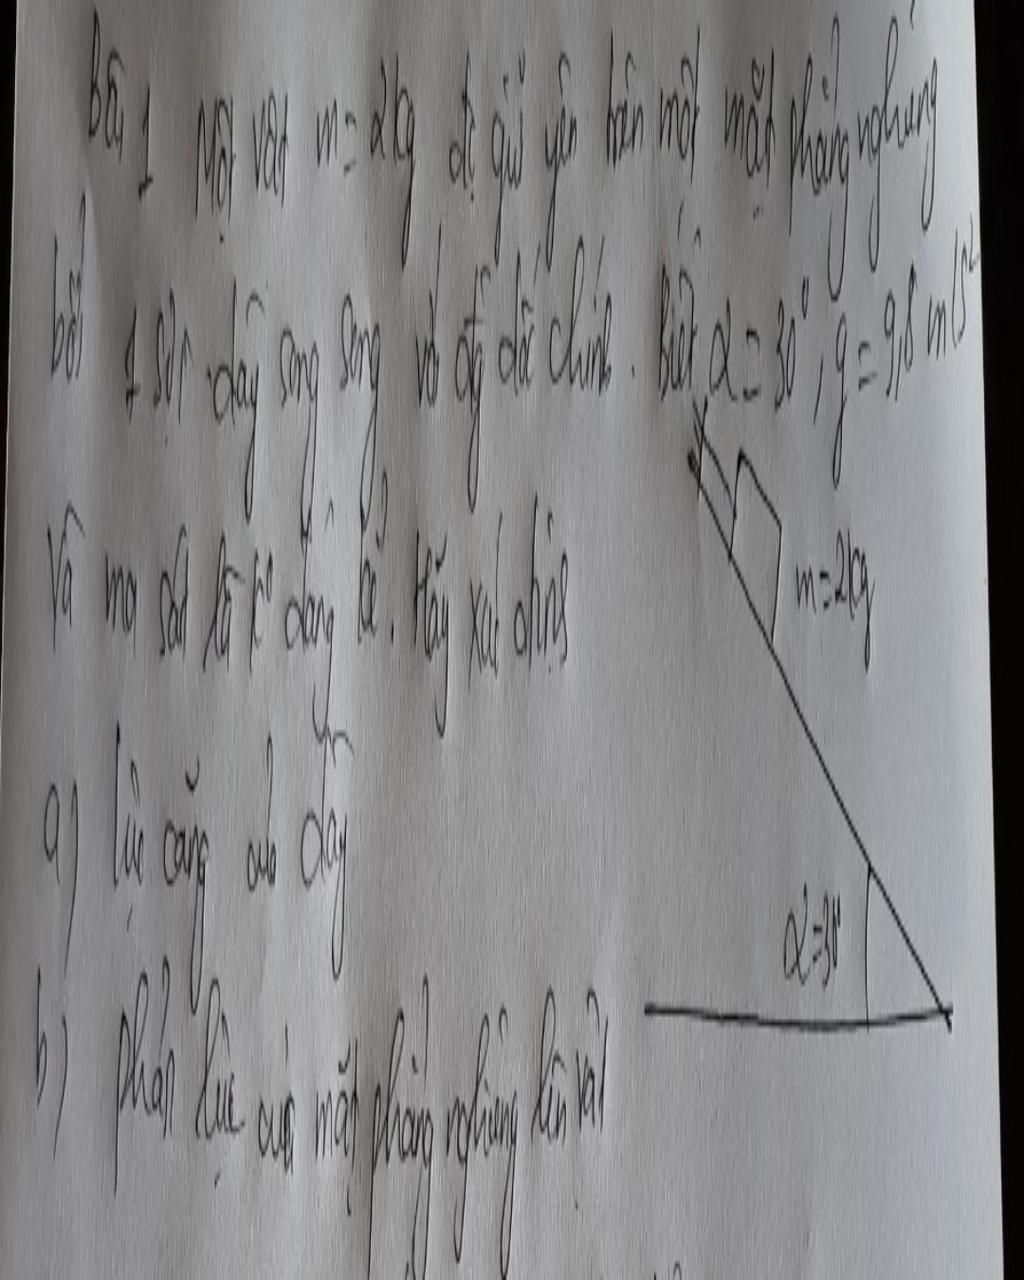 Bài 1 Một vật m = 2kg đc giữ yên trên một mặt phẳng nghiêng
bởi 1 sợi dây song song vs đg dốc chính. Biết α = 30°, g = 9,8 m/s²
Và ma sát là k đáng kể. Hãy xác định
m = 2kg
a) lực căng của dây
α = 30°
b) phản lực của mặt phẳng nghiêng lên vật